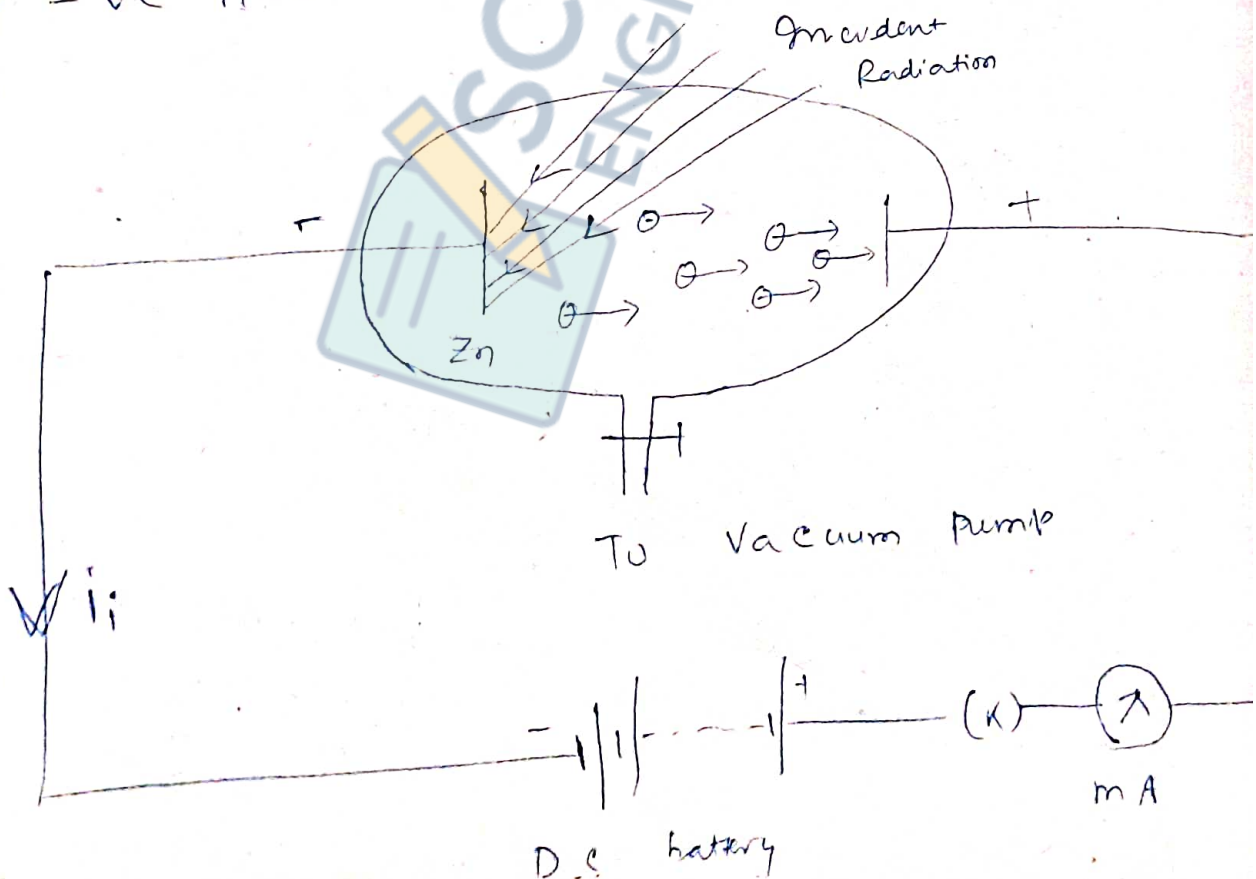 Incident
Radiation
-
+
Zn
To Vacuum Pump
i₁
-
+
(K)
mA
D.C battery
SC
ENGI